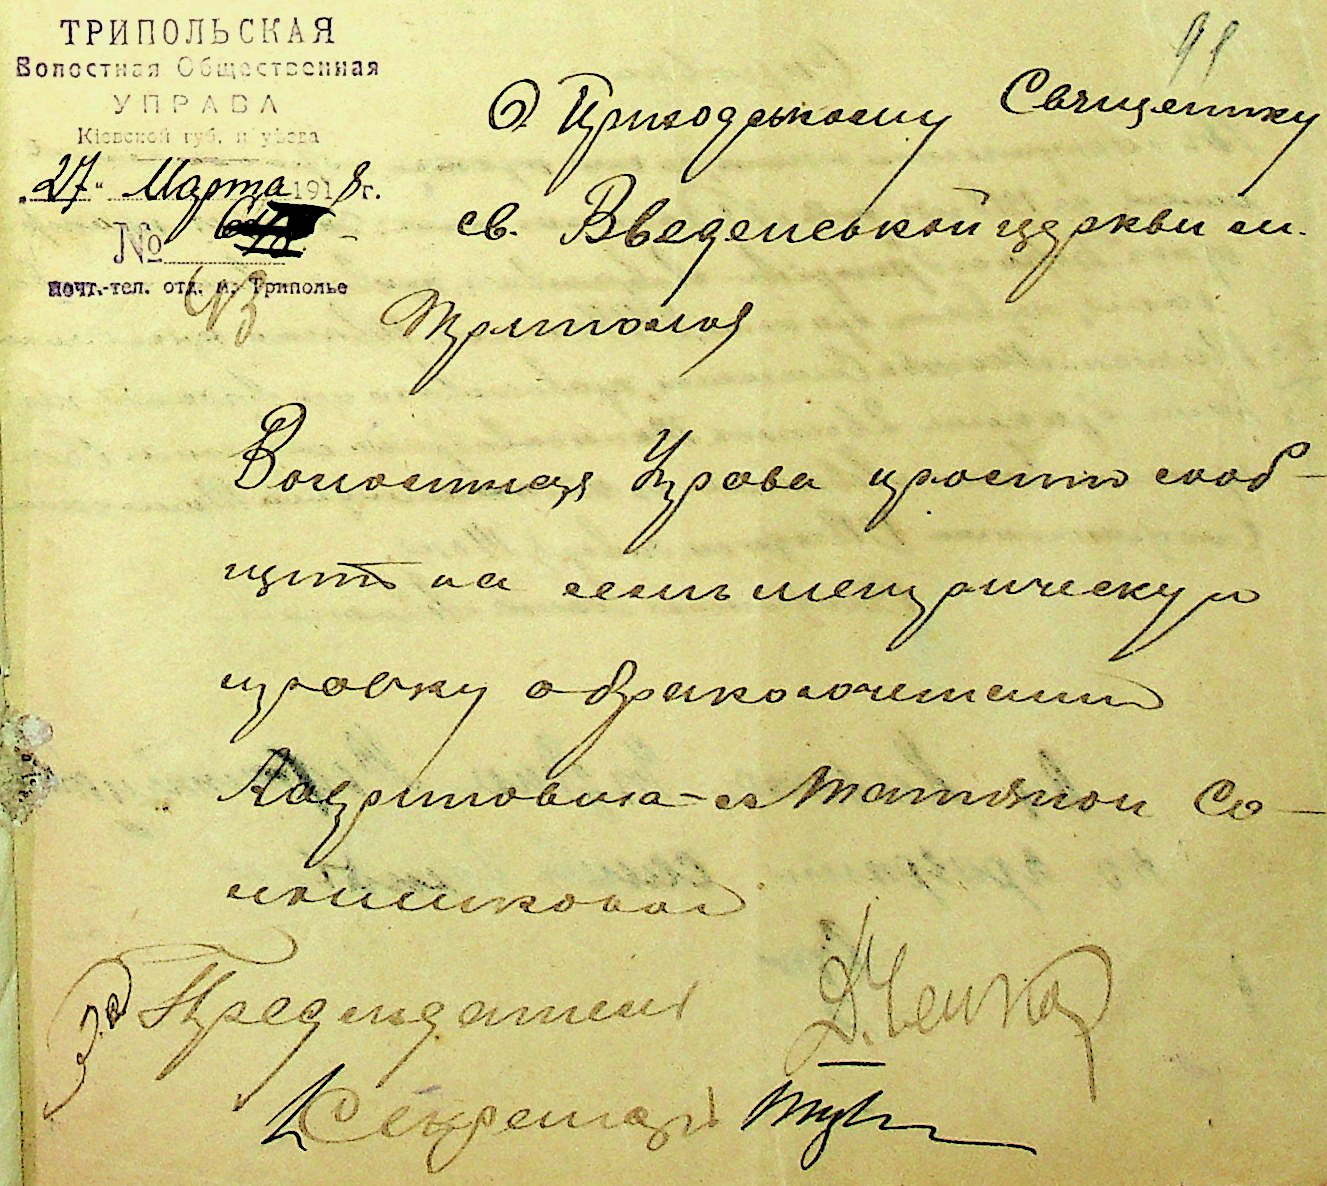 91
ТРИПОЛЬСКАЯ
Волостная Общественная
УПРАВА
Кіевской губ. и уѣзда
„27" Марта 1918 г.
№
почт.-тел. отд. м. Триполье
О Приходському Священику
св. Введенськой церкви м.
Триполья
Волостная Управа просит сооб-
щить на сем метрическую
справку о бракосочетании
с Татяной Со-
За Председатель
Секретар